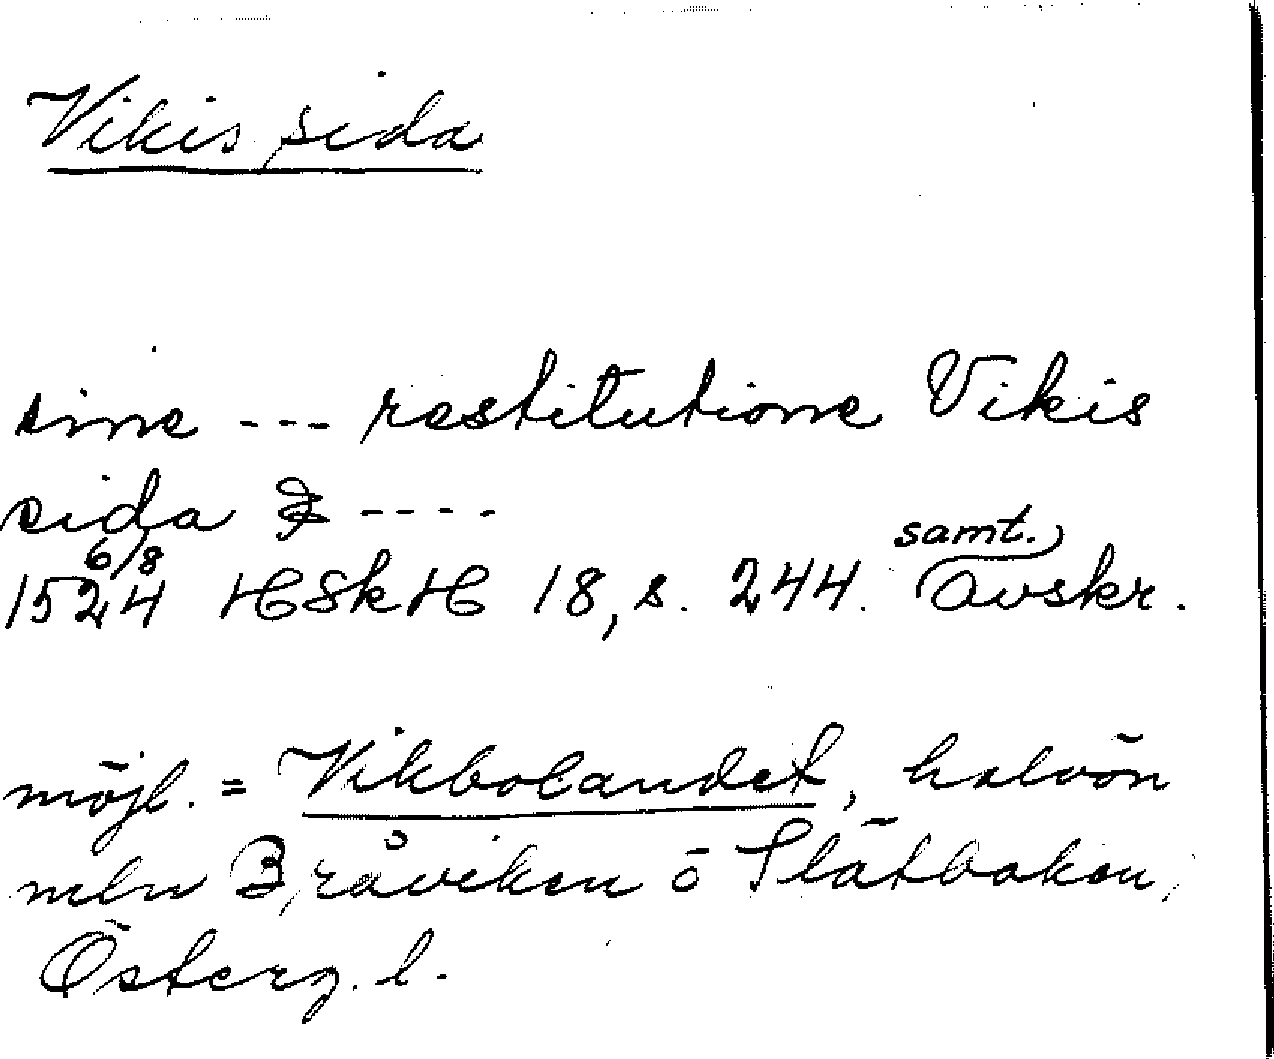 Vikis sida
sine --- restitutione Vikis
sida & ----
6/8 samt.
1524 HSkH 18, s. 244. avskr.
möjl. = Vikbolandet, halvön
mln Bråviken o Slätbaken,
Österg. l.